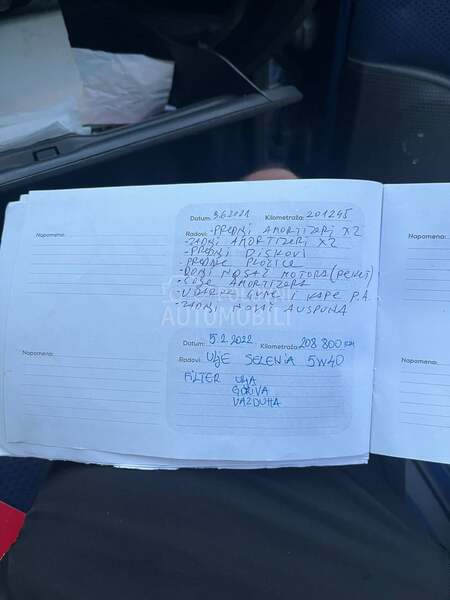 Napomena:
Datum: 3.6.2021 Kilometraža: 201245
Radovi: -PREDNJI AMORTIZERI X2
-ZADNJI AMORTIZERI X2
-PREDNJI DISKOVI
-PREDNJE PLOČICE
-DONJI NOSAČ MOTORA
AMORTIZERA
GUME I KAPE P.A.
-ZADNJI NOSAČ AUSPUHA
AUTOMOBILI
Napomena:
Datum: 5.2.2022 Kilometraža: 208 800 km
Radovi: Ulje SELENIA 5W40
FILTER Ulja
GORIVA
VAZDUHA
Napomena:
Napomena: